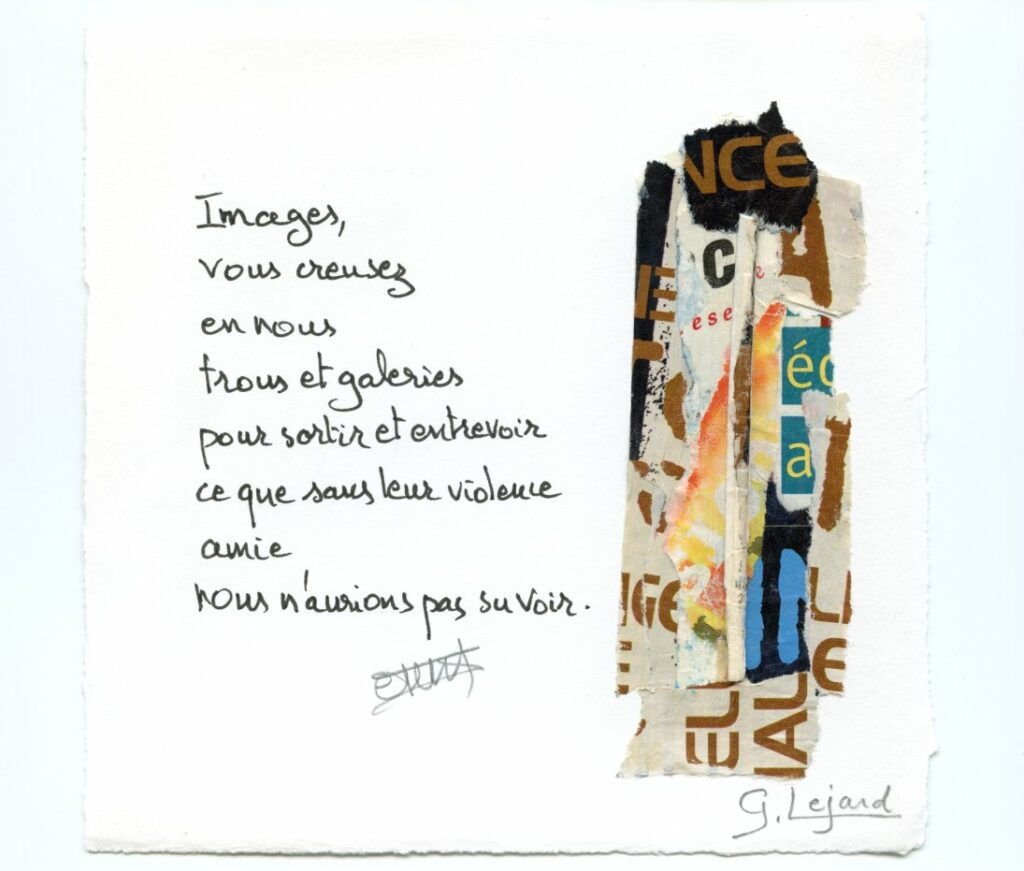 Images,
vous creusez
en nous
trous et galeries
pour sortir et entrevoir
ce que sans leur violence
amie
nous n'aurions pas su voir.
NCE
C
ese
éc
a
NGE
EL
IAL
E
G. Lejard